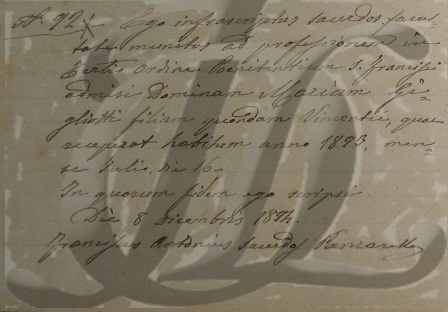 N. 92 Ego infrascriptus sacedos, facul=
tate munitus ad professionem in
Tertio Ordine Poenitentium S. Francisci
admisi Dominam Mariam Gi=
gliotti filiam quondam Vincentii, quae
receperat habitum anno 1893, men=
se Julii, die 16.
In quorum fidem ego scripsi.
Die 8 dicembris 1894.
Franciscus Antonius Sacedos Panzarella